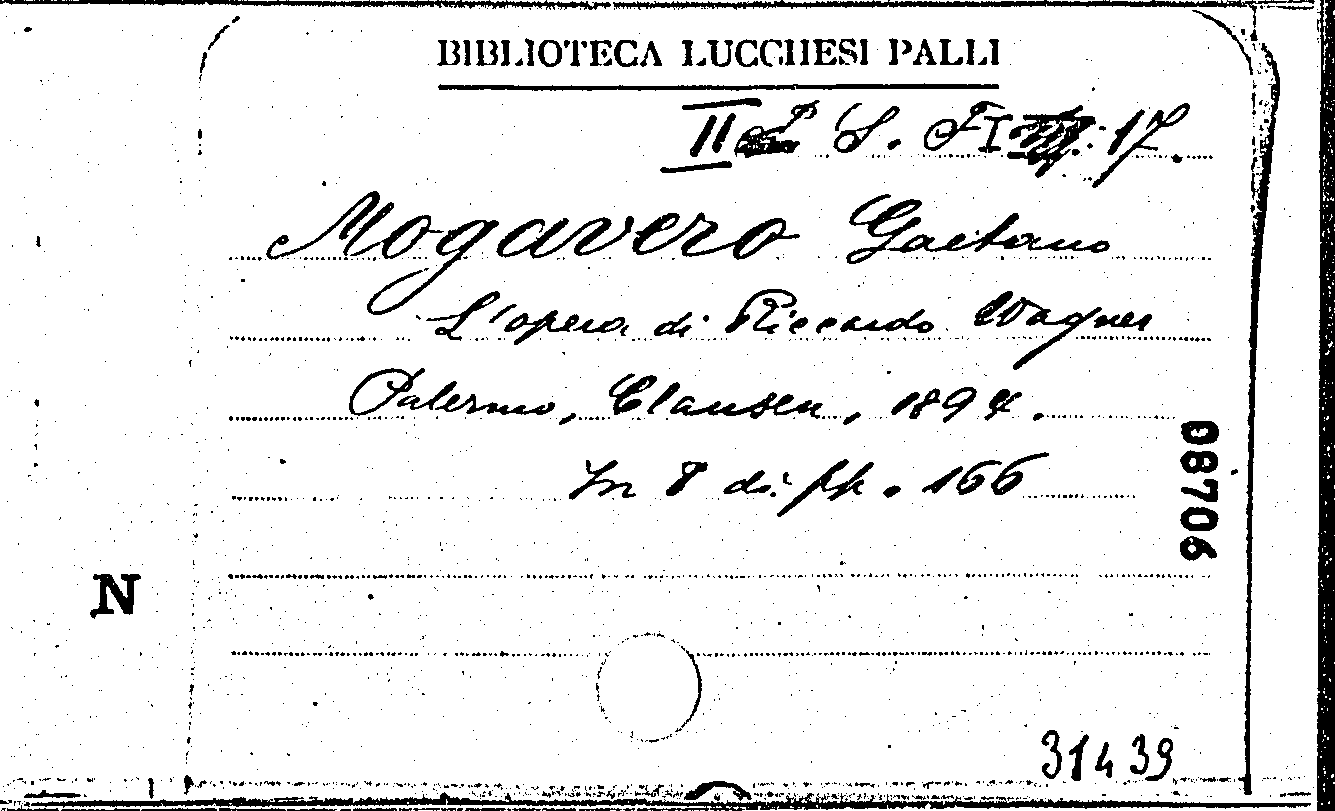 BIBLIOTECA LUCCHESI PALLI
II S. F I 17.
Mogavero Gaetano
L'opera di Riccardo Wagner
Palermo, Clausen, 1897.
In 8 di pp. 166
08706
N
31439